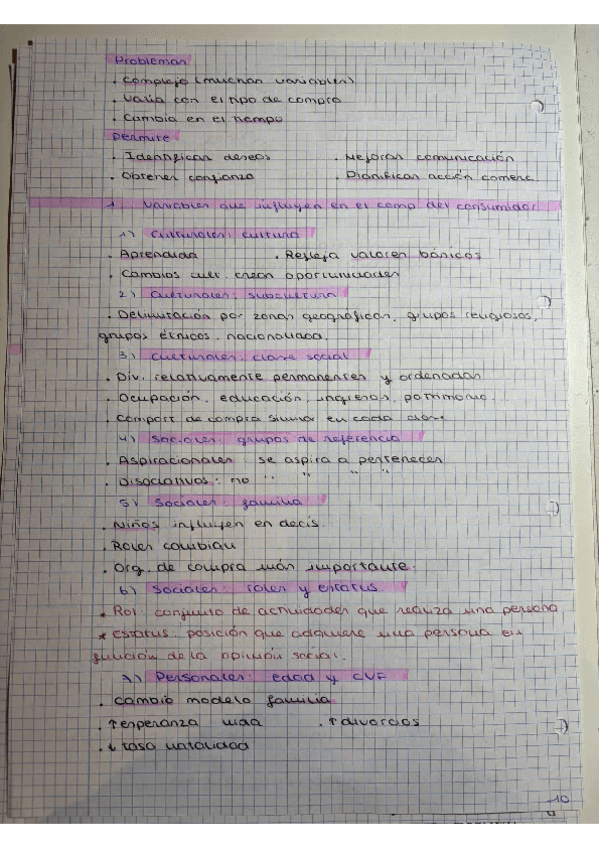 Problemas
. Complejo (muchas variables)
. Varía con el tipo de compra
. Cambia en el tiempo
Permite
. Identificar deseos . Mejorar comunicación
. Obtener confianza . Planificar acción comerc.
1. Variables que influyen en el comp. del consumidor
1) Culturales: cultura
. Aprendida . Refleja valores básicos
. Cambios cult. crean oportunidades
2) Culturales: subcultura
. Delimitación por zonas geográficas, grupos religiosos,
grupos étnicos, nacionalidad.
3) Culturales: clase social
. Div. relativamente permanentes y ordenadas
. Ocupación, educación, ingresos, patrimonio...
. Comport. de compra similar en cada clase
4) Sociales: grupos de referencia
. Aspiracionales: se aspira a pertenecer
. Disociativos: no " " " "
5) Sociales: familia
. Niños influyen en decis.
. Roles cambian
. Org. de compra más importante.
6) Sociales: roles y estatus
* Rol: conjunto de actividades que realiza una persona
* Estatus: posición que adquiere una persona en
función de la opinión social.
7) Personales: edad y CVF
. Cambio modelo familia
. ↑ esperanza vida . ↑ divorcios
. ↓ tasa natalidad
10